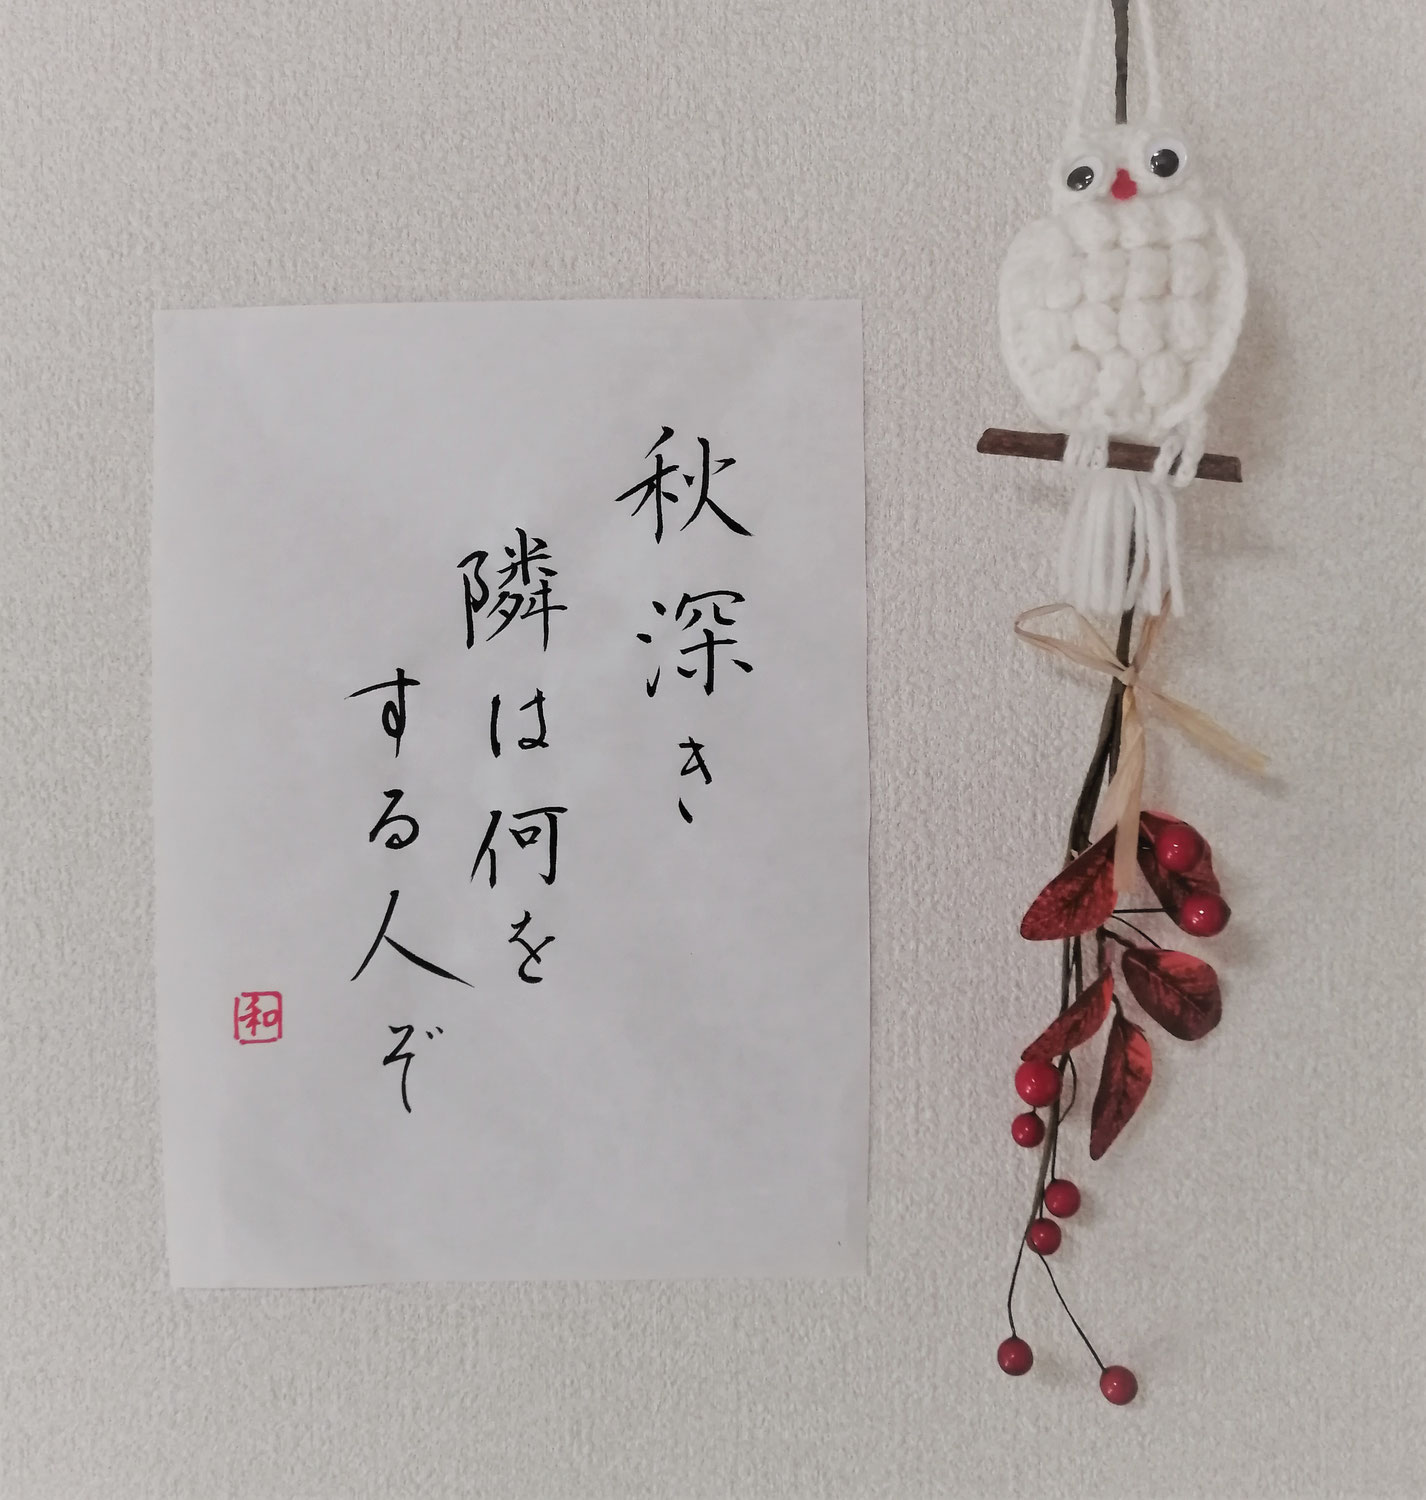 秋深き
隣は何を
する人ぞ
和